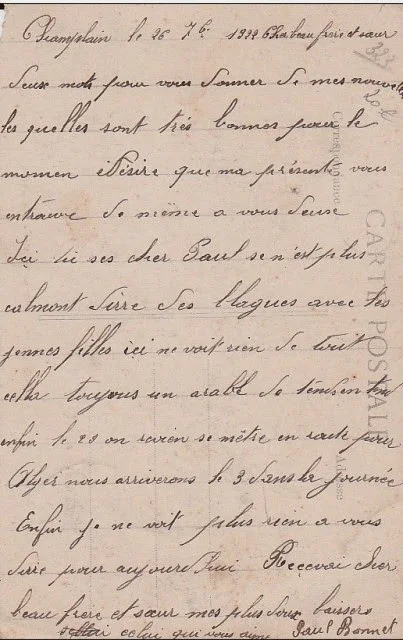 Champlain le 26 7bre 1922 Cher beau frère et sœur
deux mots pour vous donner de mes nouvelles
les quelles sont très bonnes pour le
momen et Désire que ma présente vous
entrouve de même a vous deux
Içi tu ses cher Paul se n'est plus
calmont dirre des blagues avec les
jennes filles içi ne voit rien de tout
cella toujous un arabe de tend en tend
enfin le 29 on revien se mêtre en route pour
Alger nous arriverons le 3 dans la journée
Enfin je ne voit plus rien a vous
dirre pour aujourd'hui Recevai cher
beau frère et sœur mes plus doux baisers
celui qui vous aime Paul Bonnet
323
20 d
Correspondance
CARTE POSTALE
Adresse